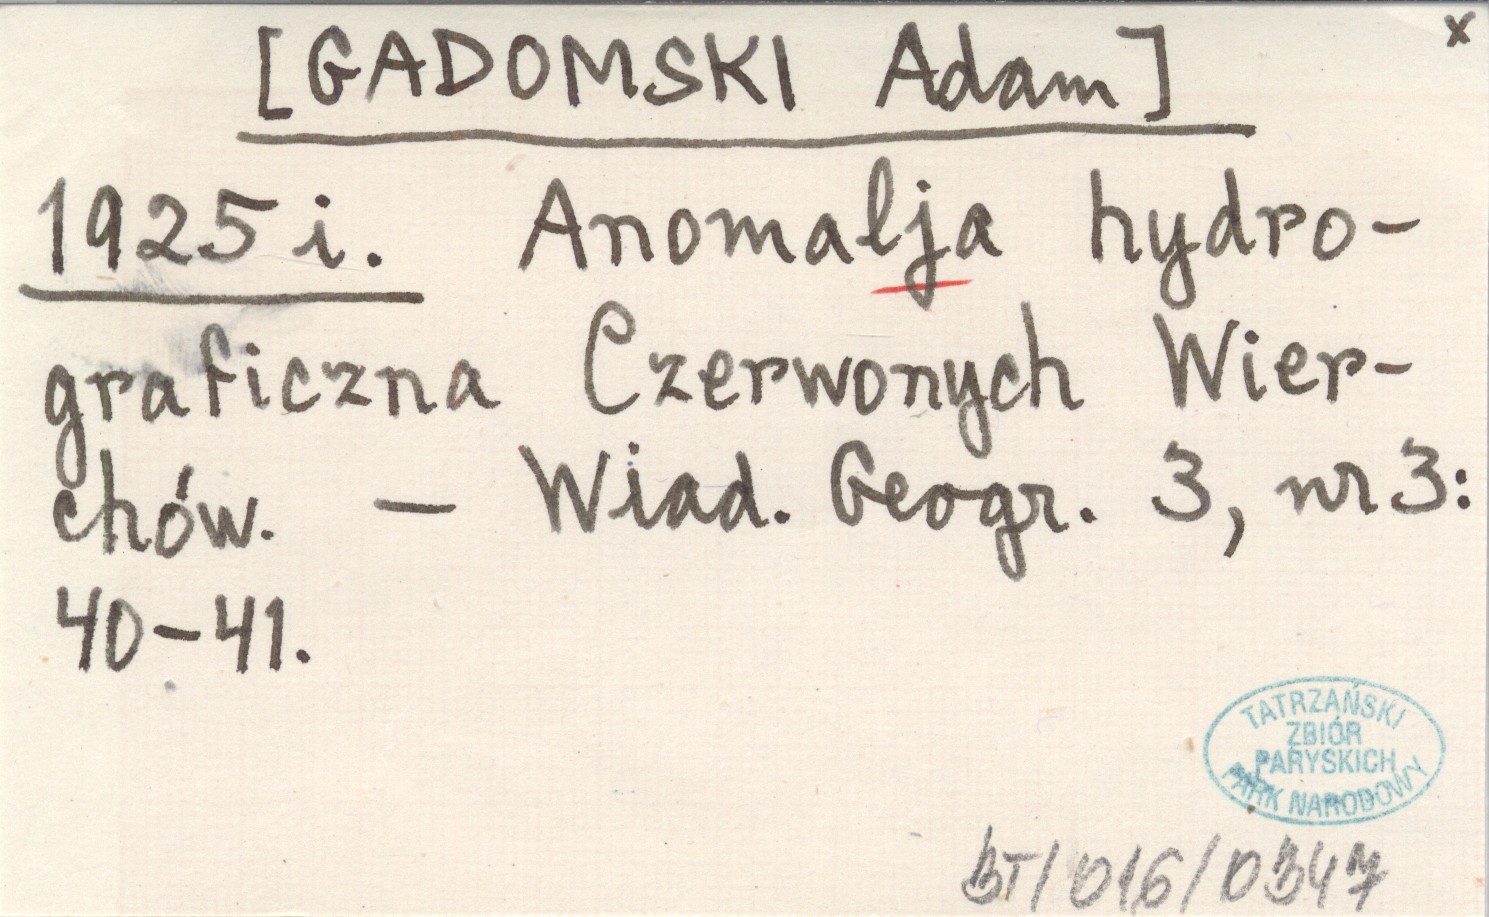 x
[GADOMSKI Adam]
1925 i. Anomalja hydro-
graficzna Czerwonych Wier-
chów. — Wiad. Geogr. 3, nr 3:
40-41.
TATRZAŃSKI
ZBIÓR
PARYSKICH
PARK NARODOWY
BT/016/0347